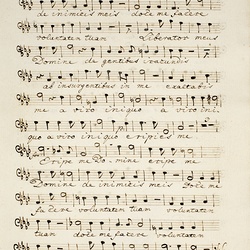 de inimicis meis doce me facere
voluntatem tuam Liberator meus
Domine de gentibus iracundis
ab insurgentibus in me exaltabis
me a viro iniquo a viro ini-
quo a viro iniquo eripies me
Eripe me Domine eripe me
Domine de inimicis meis doce me
facere voluntatem tuam voluntatem
tuam doce me facere voluntatem